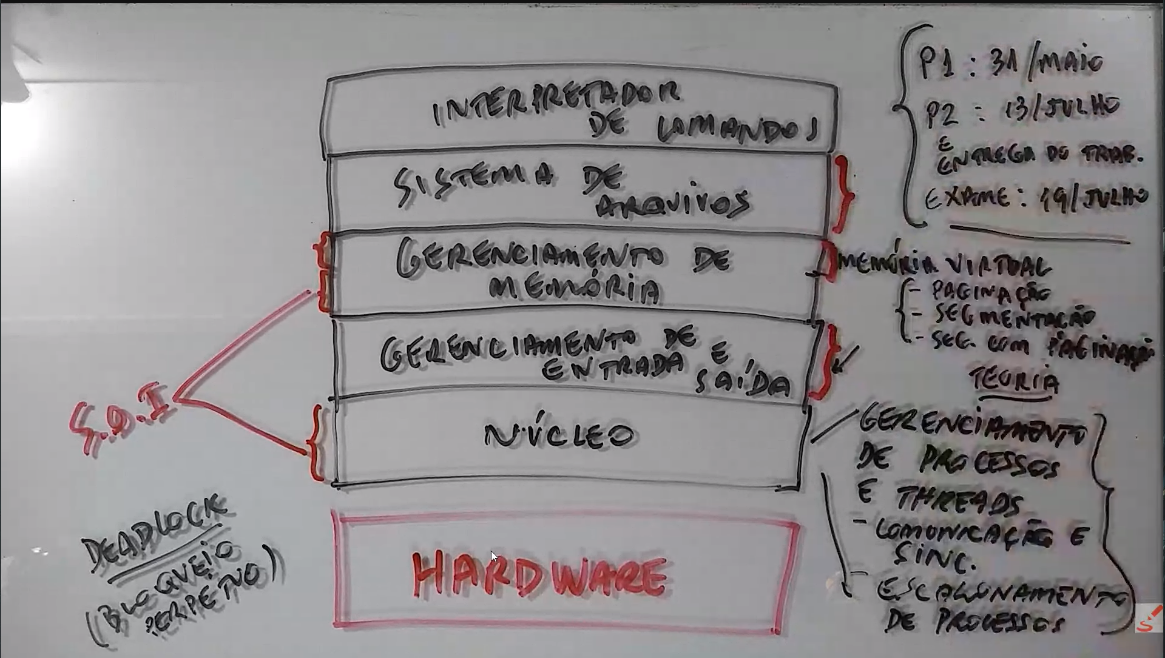 INTERPRETADOR
DE COMANDOS
SISTEMA DE
ARQUIVOS
GERENCIAMENTO DE
MEMÓRIA
GERENCIAMENTO DE E
ENTRADA SAÍDA
NÚCLEO
HARDWARE
S.O.I
DEADLOCK
(BLOQUEIO
PERPÉTUO)
P1 : 31/MAIO
P2 : 13/JULHO
E
ENTREGA DO TRAB.
EXAME : 19/JULHO
MEMÓRIA VIRTUAL
- PAGINAÇÃO
- SEGMENTAÇÃO
- SEG. COM PAGINAÇÃO
TEORIA
GERENCIAMENTO
DE PROCESSOS
E THREADS
- COMUNICAÇÃO E
SINC.
- ESCALONAMENTO
DE PROCESSOS